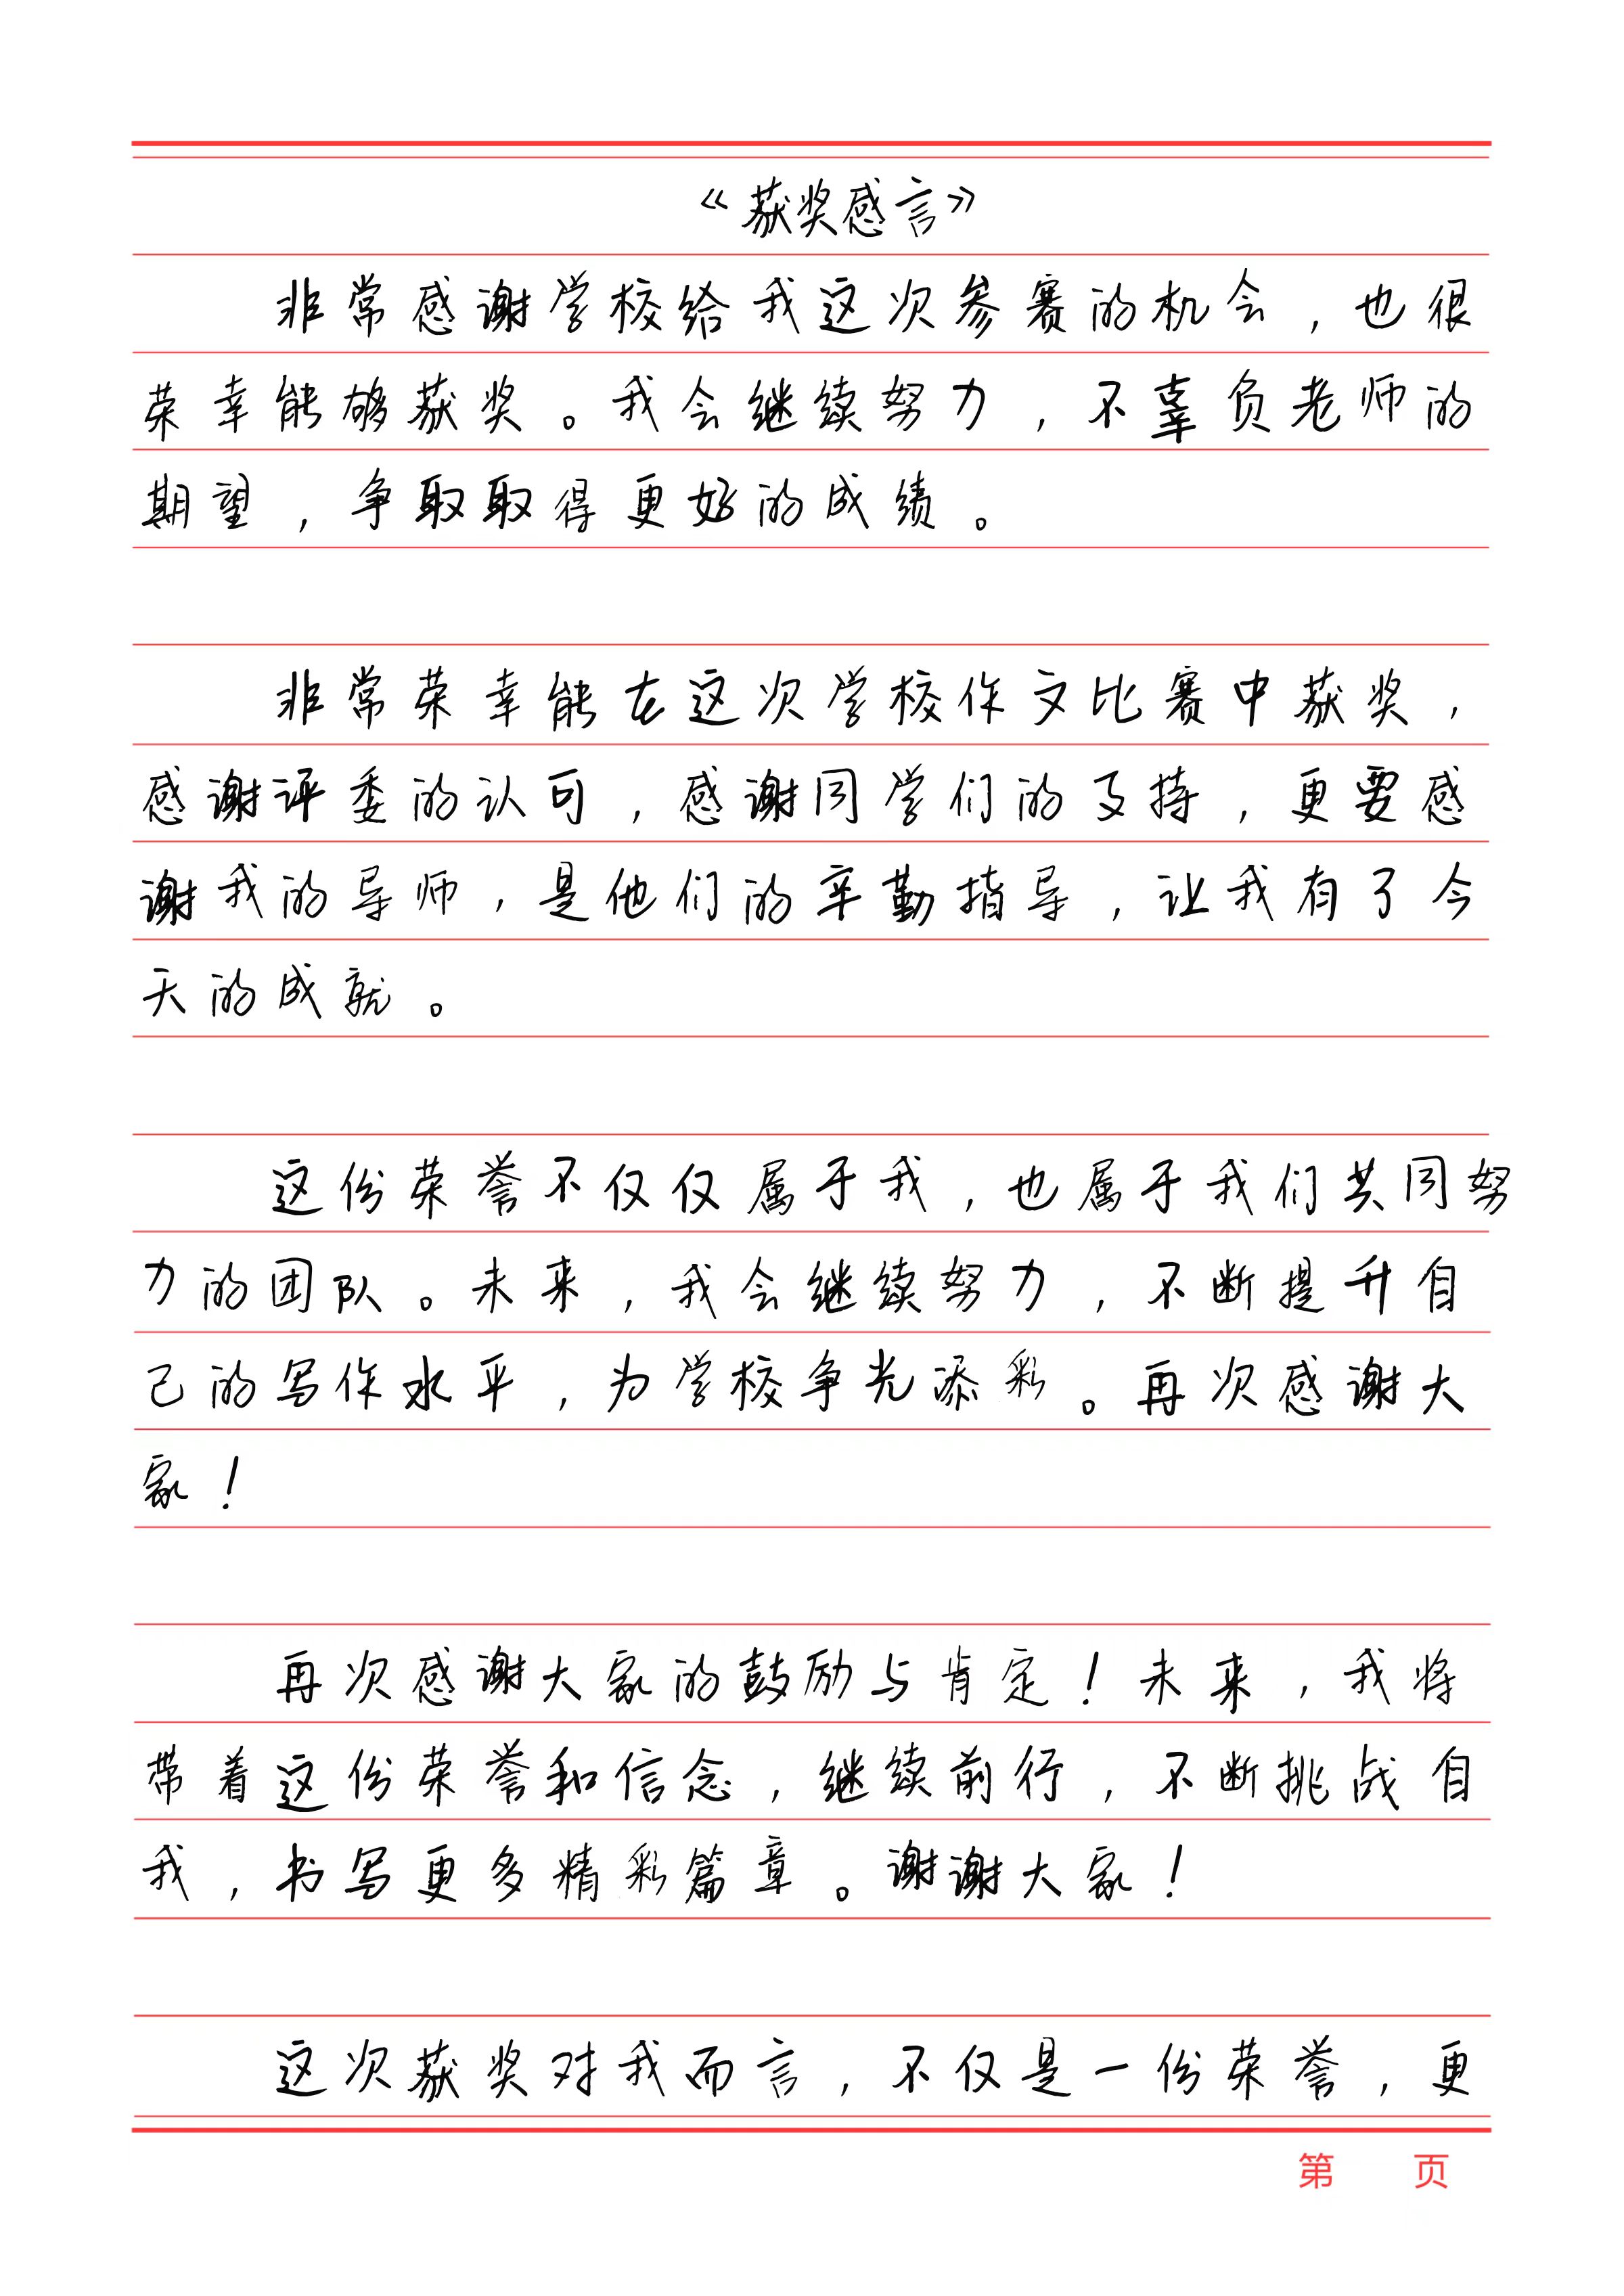 《获奖感言》
非常感谢学校给我这次参赛的机会，也很
荣幸能够获奖。我会继续努力，不辜负老师的
期望，争取取得更好的成绩。
非常荣幸能在这次学校作文比赛中获奖，
感谢评委的认可，感谢同学们的支持，更要感
谢我的导师，是他们的辛勤指导，让我有了今
天的成就。
这份荣誉不仅仅属于我，也属于我们共同努
力的团队。未来，我会继续努力，不断提升自
己的写作水平，为学校争光添彩。再次感谢大
家！
再次感谢大家的鼓励与肯定！未来，我将
带着这份荣誉和信念，继续前行，不断挑战自
我，书写更多精彩篇章。谢谢大家！
这次获奖对我而言，不仅是一份荣誉，更
第 页